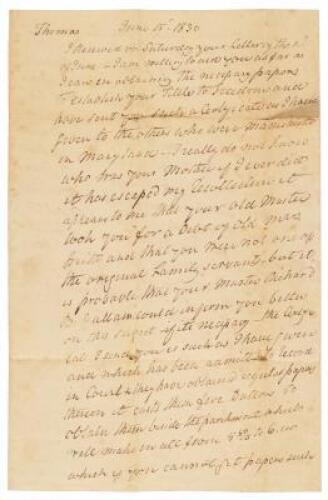 Thomas June 15th 1830
I Received on Saturday your Letter of the
of June — I am willing to aid you as far as
I can in obtaining the necessary papers
to Establish your Title to Freedom and
have sent you a Certificate as I have
given to the others who were Manumitted
in Maryland — I really do not know
who was your Mother if I ever did
it has escaped my Recollection it
appears to me that your old Master
took you for a Debt of old Max
and that you were not one of
the original Family servants but it
is probable that your Master Richard
could inform you better
on this subject if it is necessary — the Certifi-
cate I send you is such as I have given
and which has been admitted to record
in Court & they have obtained regular papers
therein it costs them five Dollars to
obtain them beside the parchment which
will make in all from to 6.00
which if you cannot get papers such